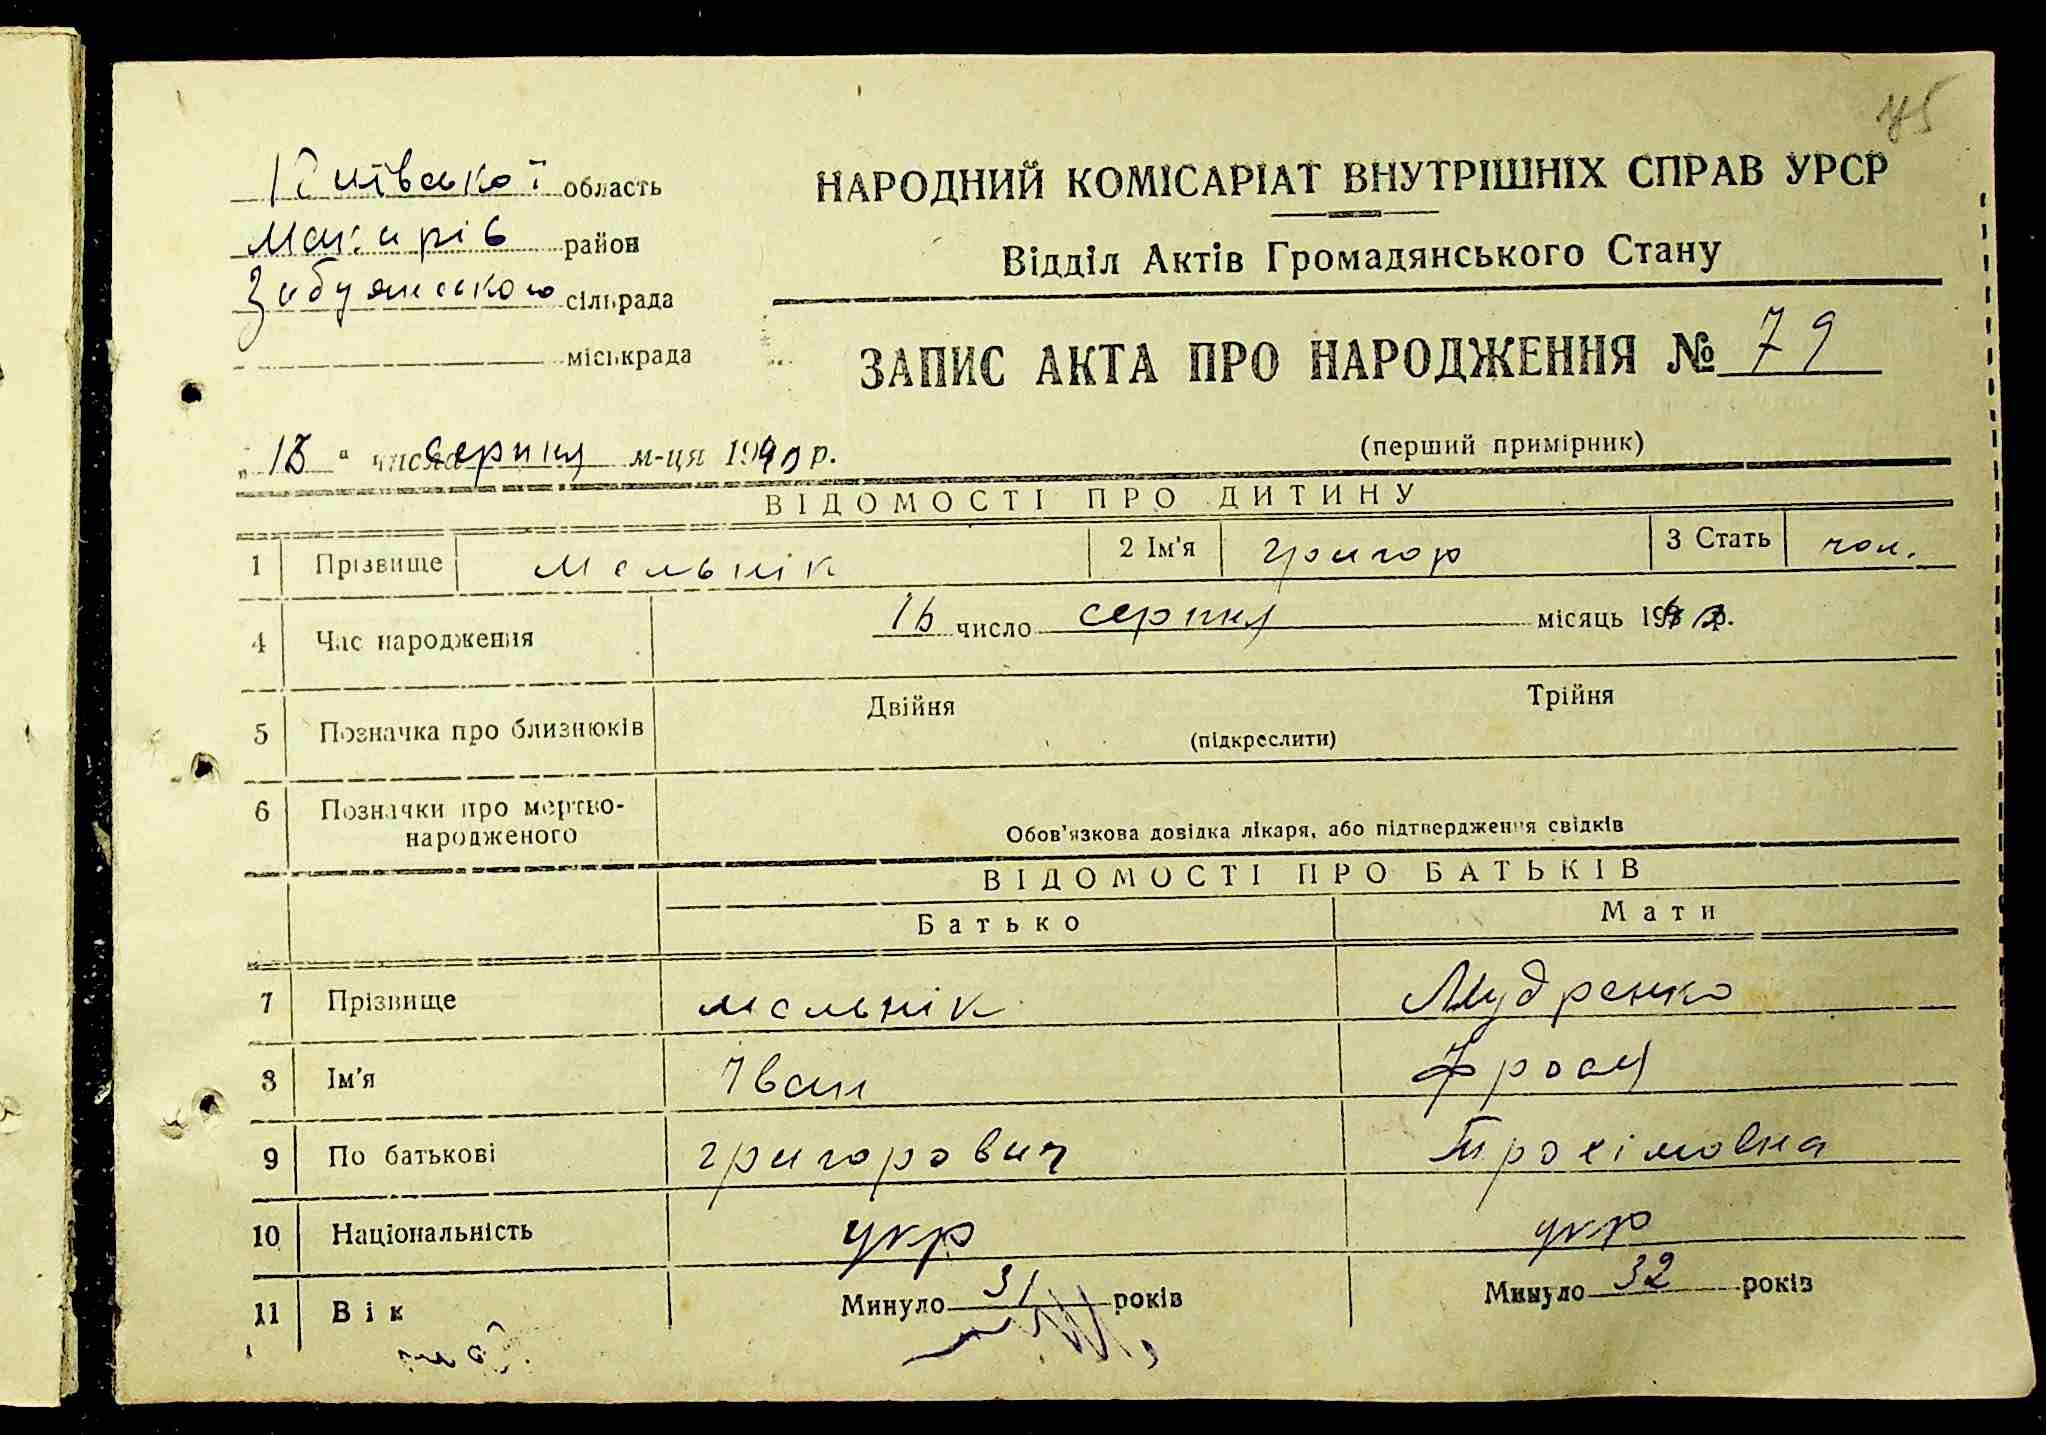 Київської область
Макарів район
Забуянською сільрада
міськрада
НАРОДНИЙ КОМІСАРІАТ ВНУТРІШНІХ СПРАВ УРСР
Відділ Актів Громадянського Стану
ЗАПИС АКТА ПРО НАРОДЖЕННЯ № 79
(перший примірник)
" " числа серпня м-ця 1940 р.
ВІДОМОСТІ ПРО ДИТИНУ
1 Прізвище Мельнік 2 Ім'я Григор 3 Стать чол.
4 Час народження число серпня місяць р.
5 Позначка про близнюків Двійня Трійня
(підкреслити)
6 Позначки про мертво-
народженого Обов'язкова довідка лікаря, або підтвердження свідків
ВІДОМОСТІ ПРО БАТЬКІВ
Батько Мати
7 Прізвище Мельнік Мудренко
8 Ім'я Іван Фрося
9 По батькові Григорович Трохімовна
10 Національність укр укр
11 Вік Минуло 31 років Минуло 32 років